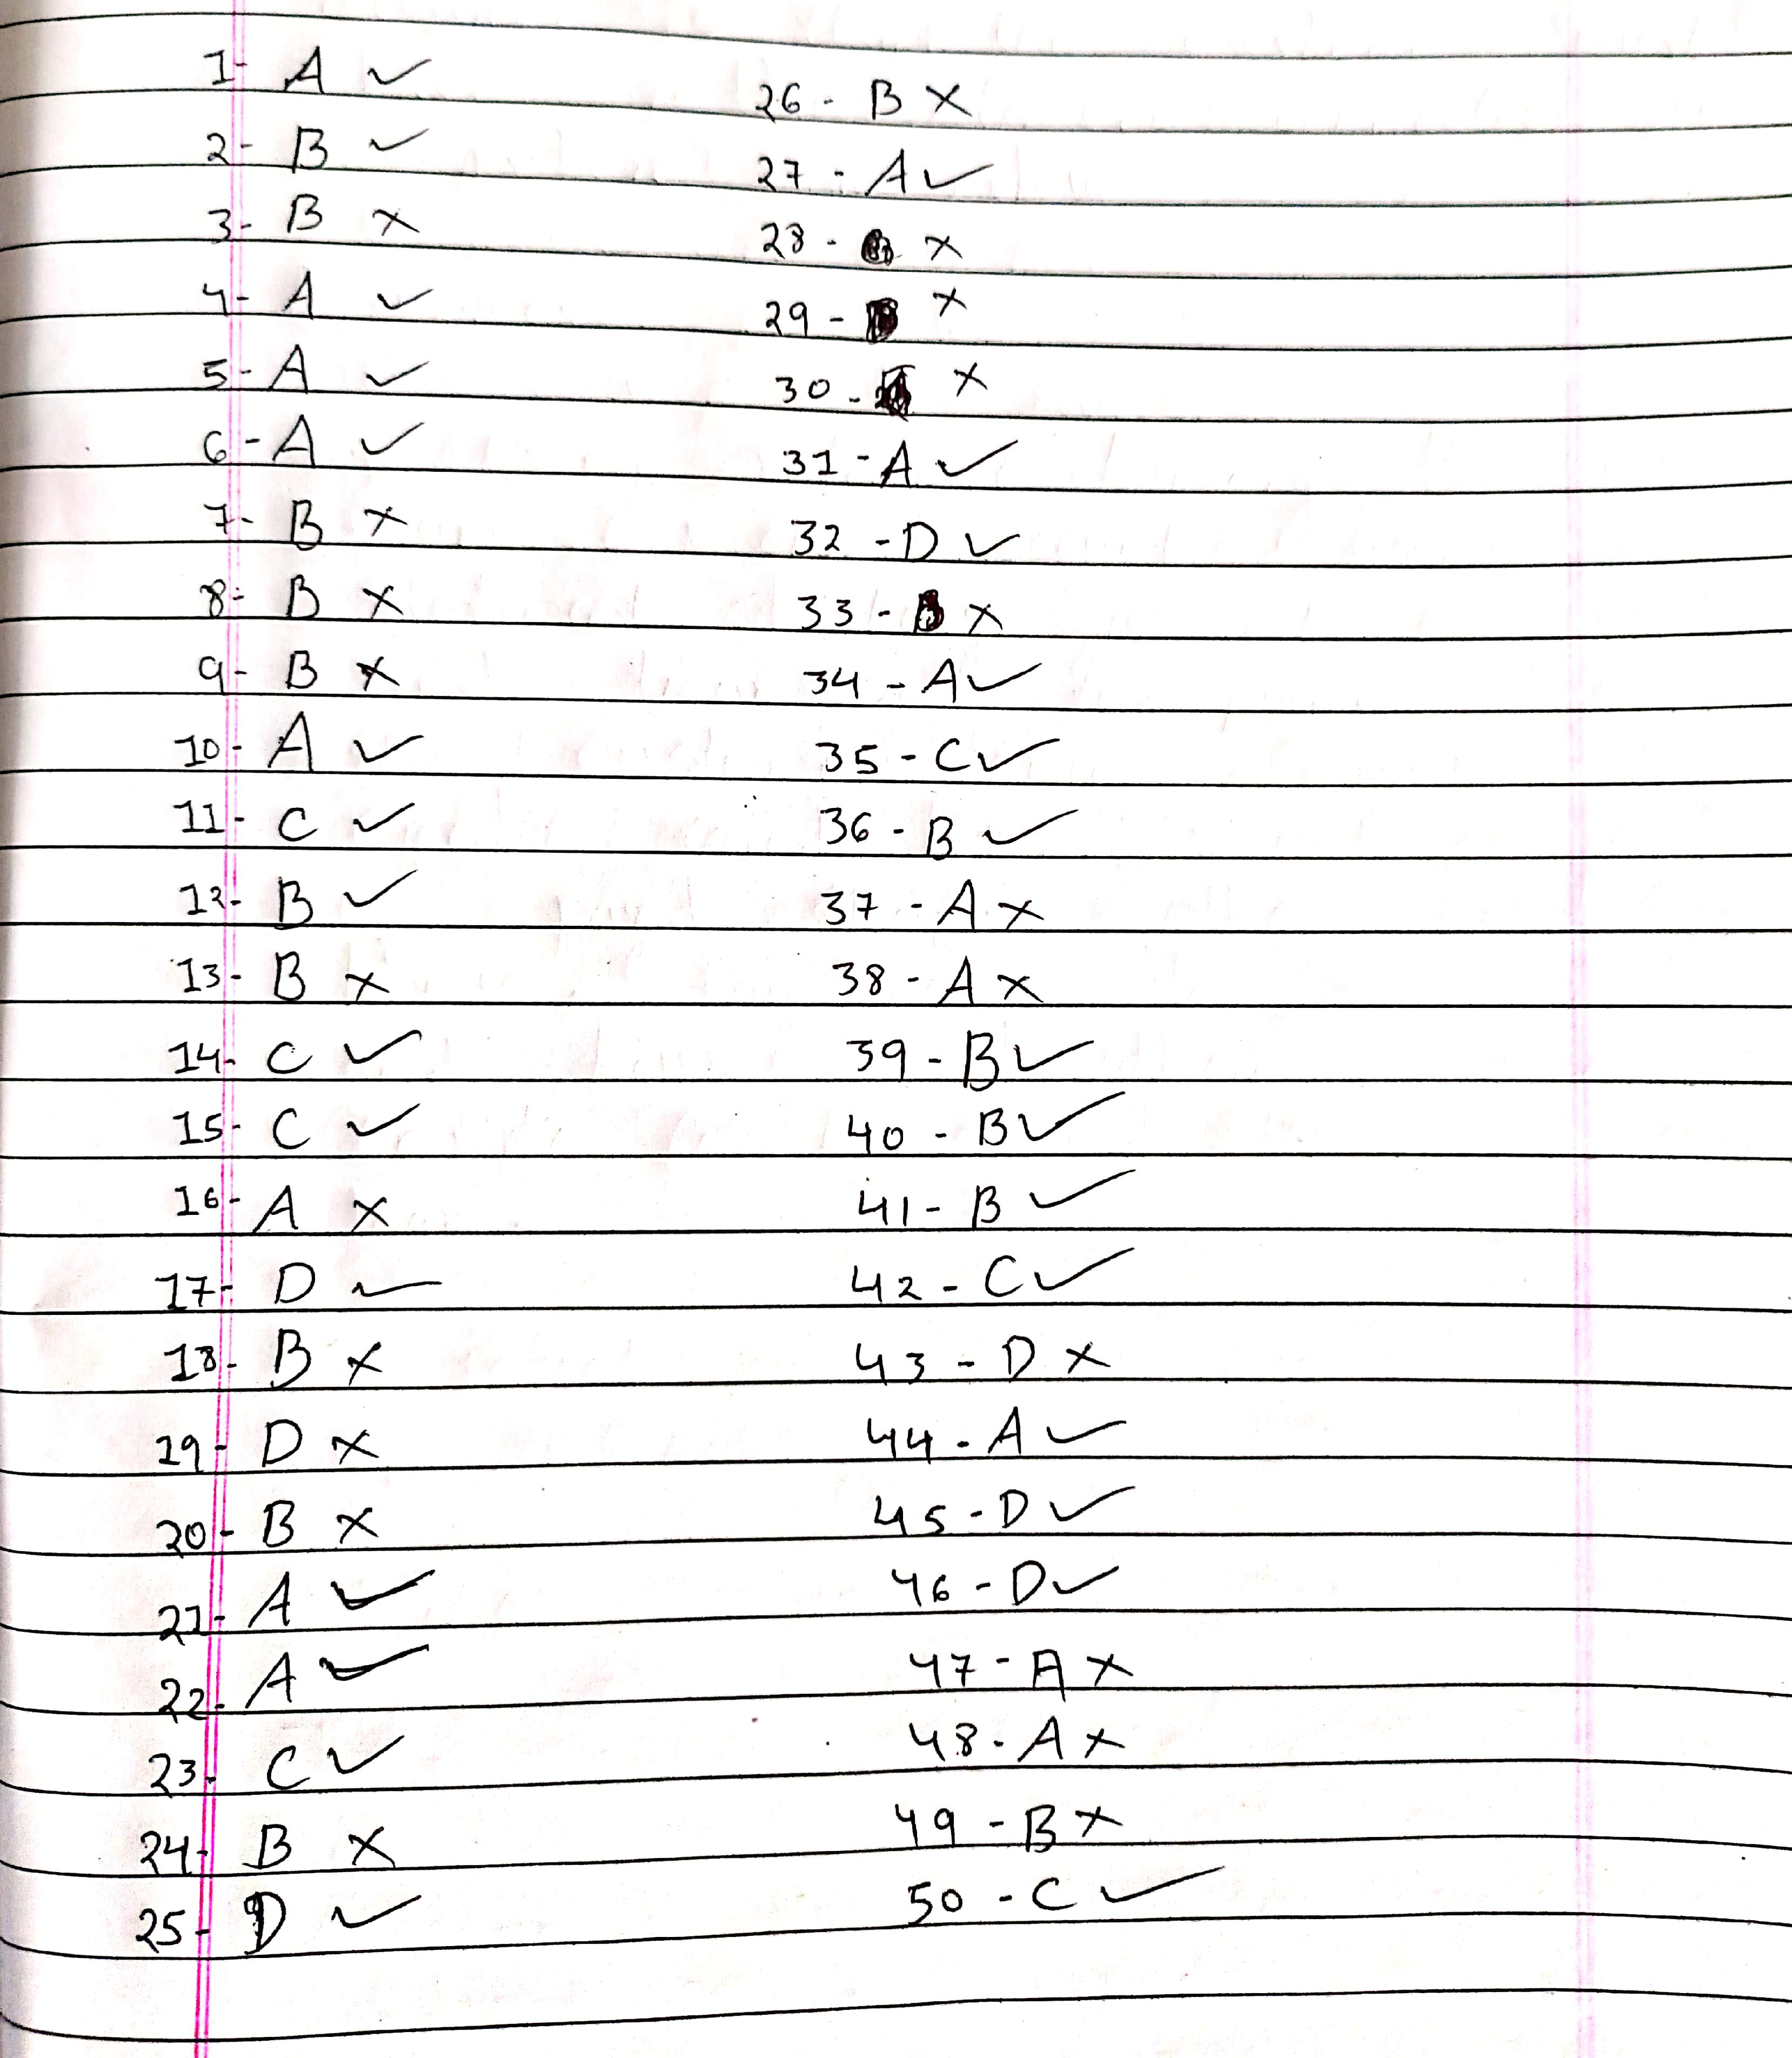 1- A ✓
2- B ✓
3- B ×
4- A ✓
5- A ✓
6- A ✓
7- B ×
8- B ×
9- B ×
10- A ✓
11- C ✓
12- B ✓
13- B ×
14- C ✓
15- C ✓
16- A ×
17- D ✓
18- B ×
19- D ×
20- B ×
21- A ✓
22- A ✓
23- C ✓
24- B ×
25- D ✓
26 - B ×
27 - A ✓
28 - ×
29 - ×
30 - ×
31 - A ✓
32 - D ✓
33 - ×
34 - A ✓
35 - C ✓
36 - B ✓
37 - A ×
38 - A ×
39 - B ✓
40 - B ✓
41 - B ✓
42 - C ✓
43 - D ×
44 - A ✓
45 - D ✓
46 - D ✓
47 - A ×
48 - A ×
49 - B ×
50 - C ✓